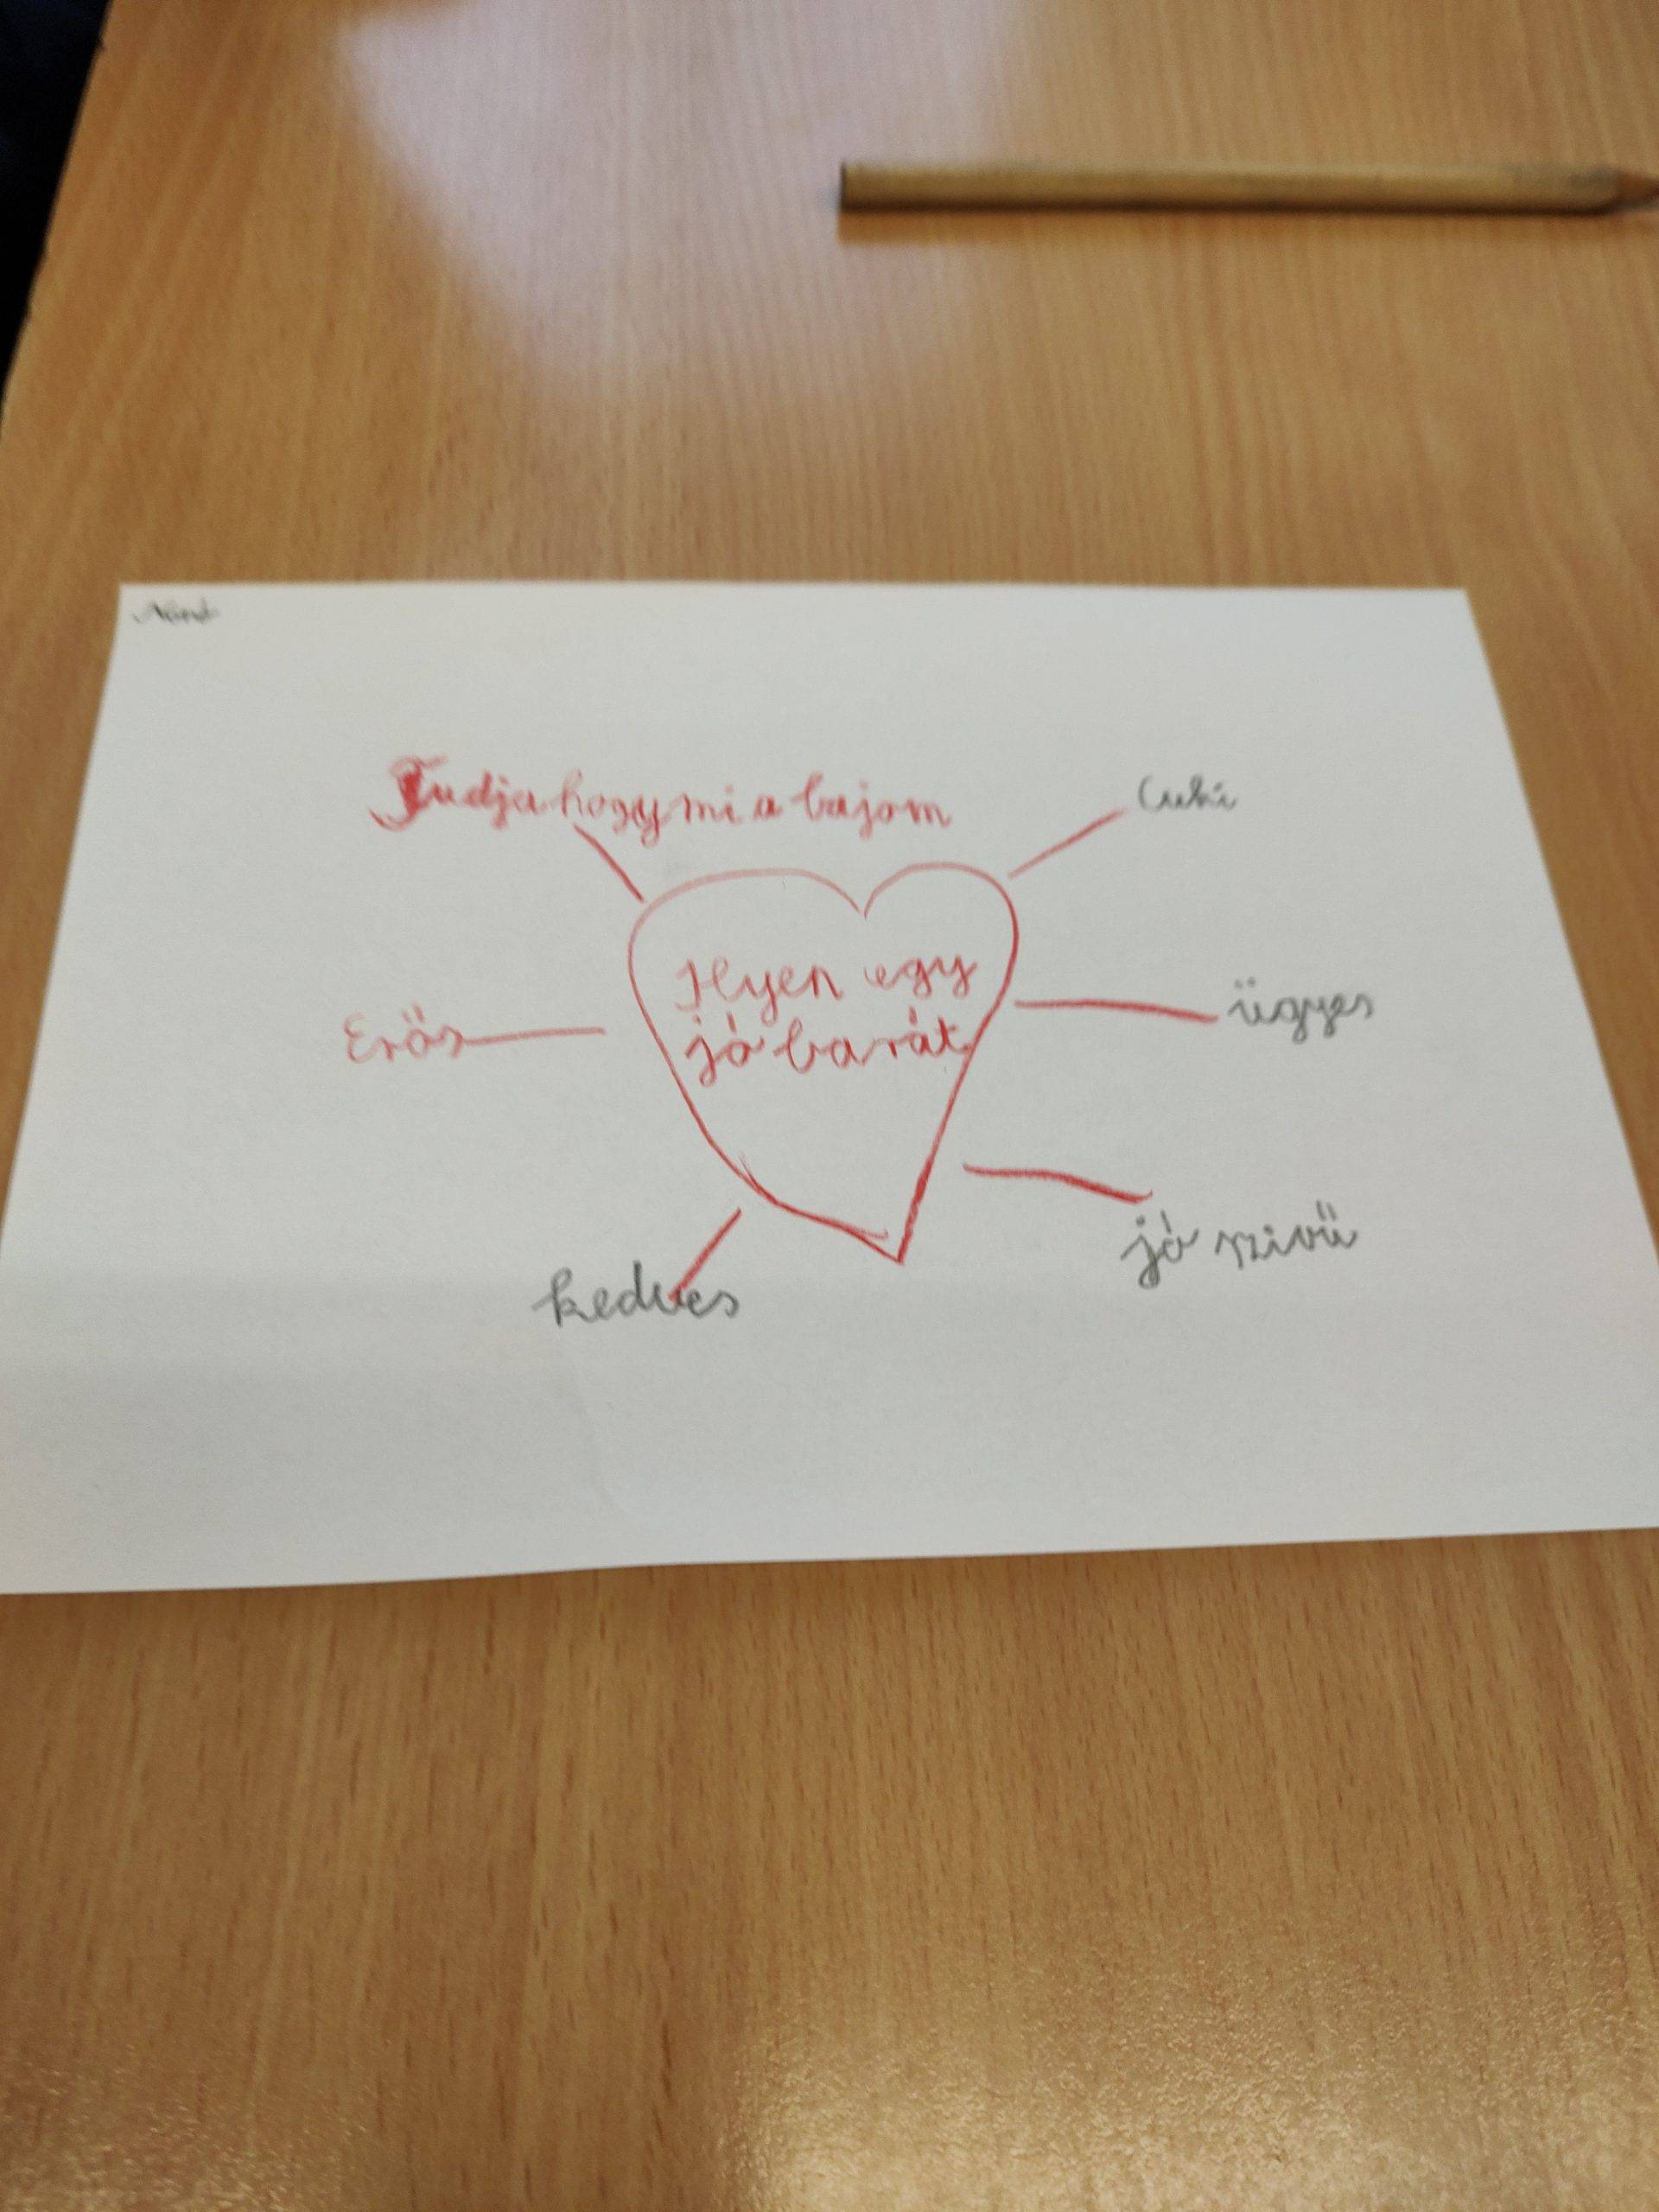 Nándi
Tudja hogy mi a bajom
Cuki
Ilyen egy
jó barát
Erős
ügyes
jó szivű
kedves